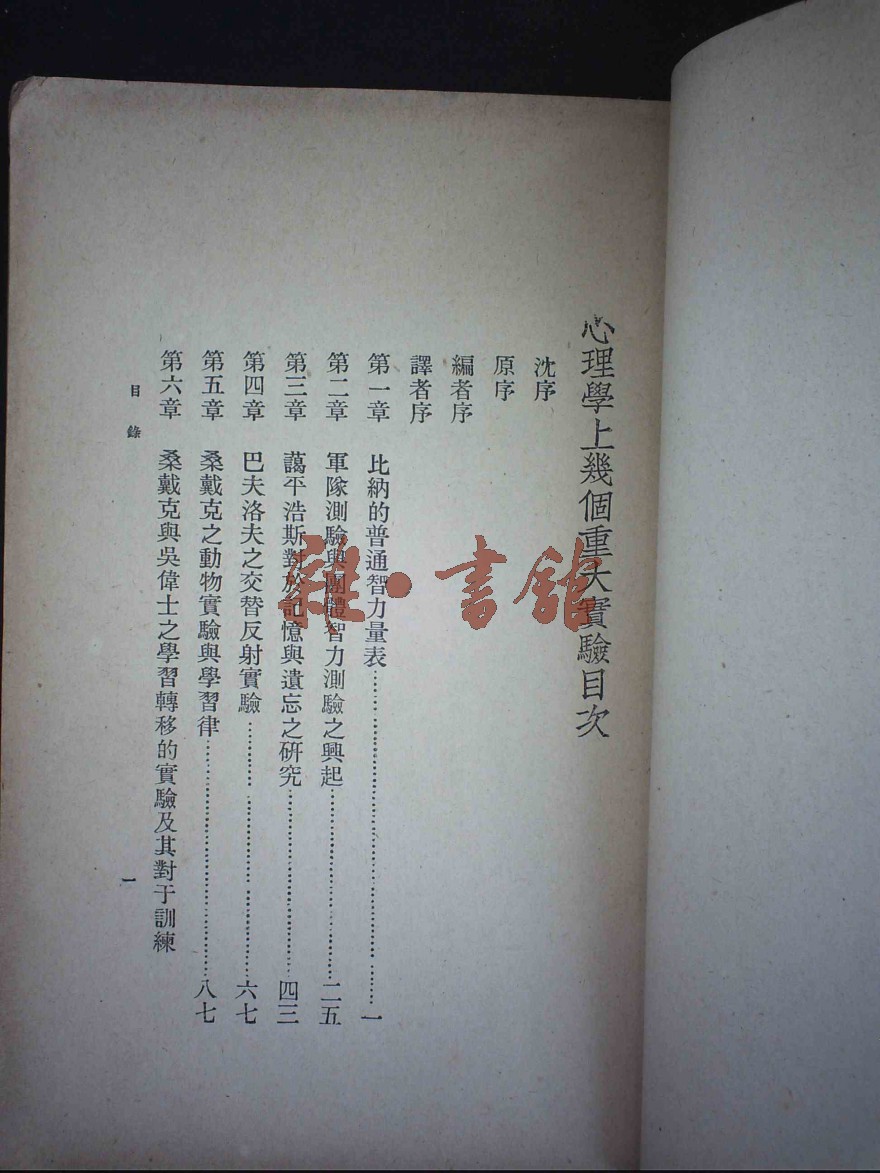 心理學上幾個重大實驗目次
沈序
原序
編者序
譯者序
第一章 比納的普通智力量表……一
第二章 軍隊測驗與團體智力測驗之興起……二五
第三章 藹平浩斯對於記憶與遺忘之研究……四三
第四章 巴夫洛夫之交替反射實驗……六七
第五章 桑戴克之動物實驗與學習律……八七
第六章 桑戴克與吳偉士之學習轉移的實驗及其對于訓練
目錄
一
雜·書館